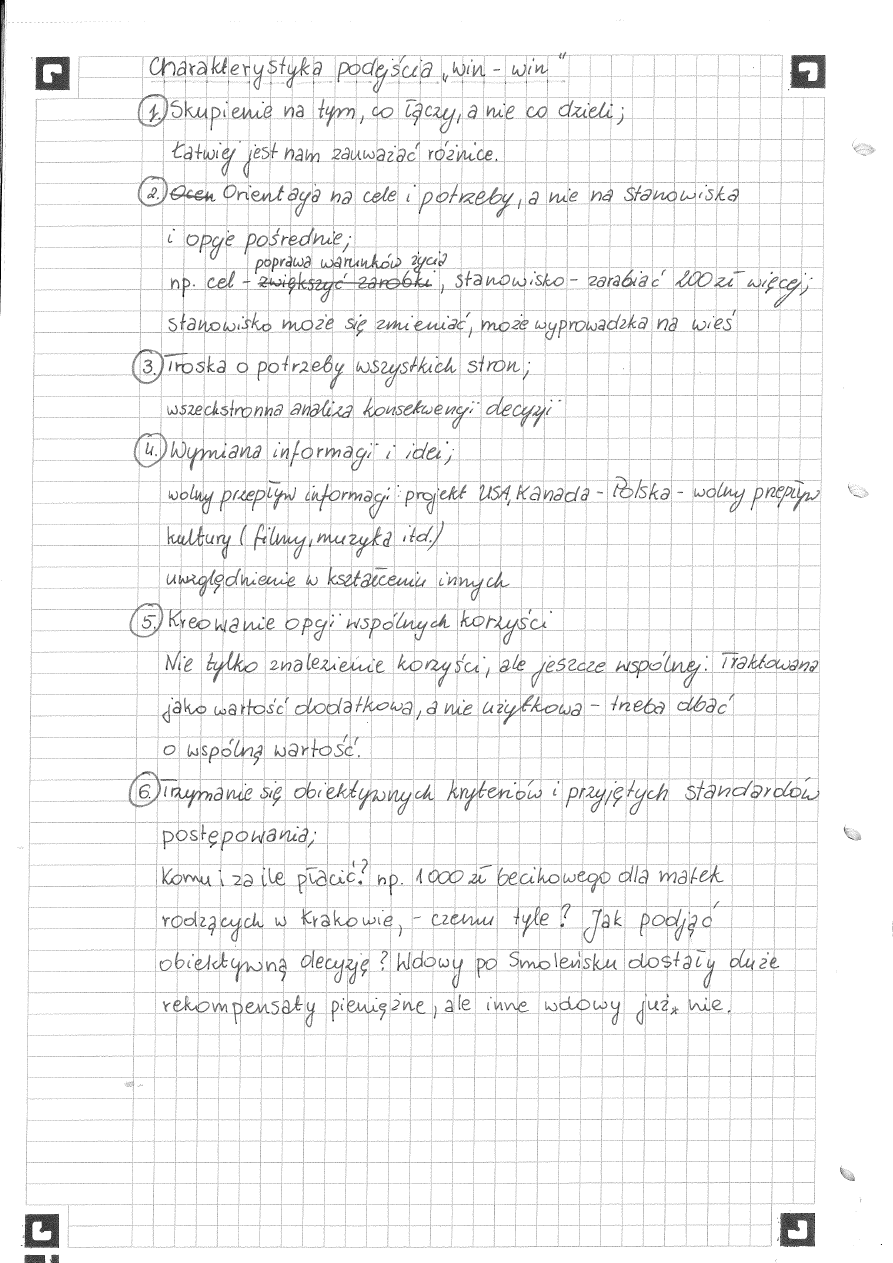 Charakterystyka podejścia „win - win”
1. Skupienie na tym, co łączy, a nie co dzieli;
Łatwiej jest nam zauważać różnice.
2. Ocen Orientacja na cele i potrzeby, a nie na stanowiska
i opcje pośrednie;
poprawa warunków życia
np. cel - zwiększyć zarobki, stanowisko - zarabiać 200 zł więcej;
stanowisko może się zmieniać, może wyprowadzka na wieś
3. Troska o potrzeby wszystkich stron;
wszechstronna analiza konsekwencji decyzji
4. Wymiana informacji i idei;
wolny przepływ informacji: projekt USA, Kanada - Polska - wolny przepływ
kultury (filmy, muzyka itd.)
uwzględnienie w kształceniu innych
5. Kreowanie opcji wspólnych korzyści
Nie tylko znalezienie korzyści, ale jeszcze wspólnej. Traktowana
jako wartość dodatkowa, a nie użytkowa - trzeba dbać
o wspólną wartość.
6. Trzymanie się obiektywnych kryteriów i przyjętych standardów
postępowania;
Komu i za ile płacić? np. 1000 zł becikowego dla matek
rodzących w Krakowie, - czemu tyle? Jak podjąć
obiektywną decyzję? Wdowy po Smoleńsku dostały duże
rekompensaty pieniężne, ale inne wdowy już nie.